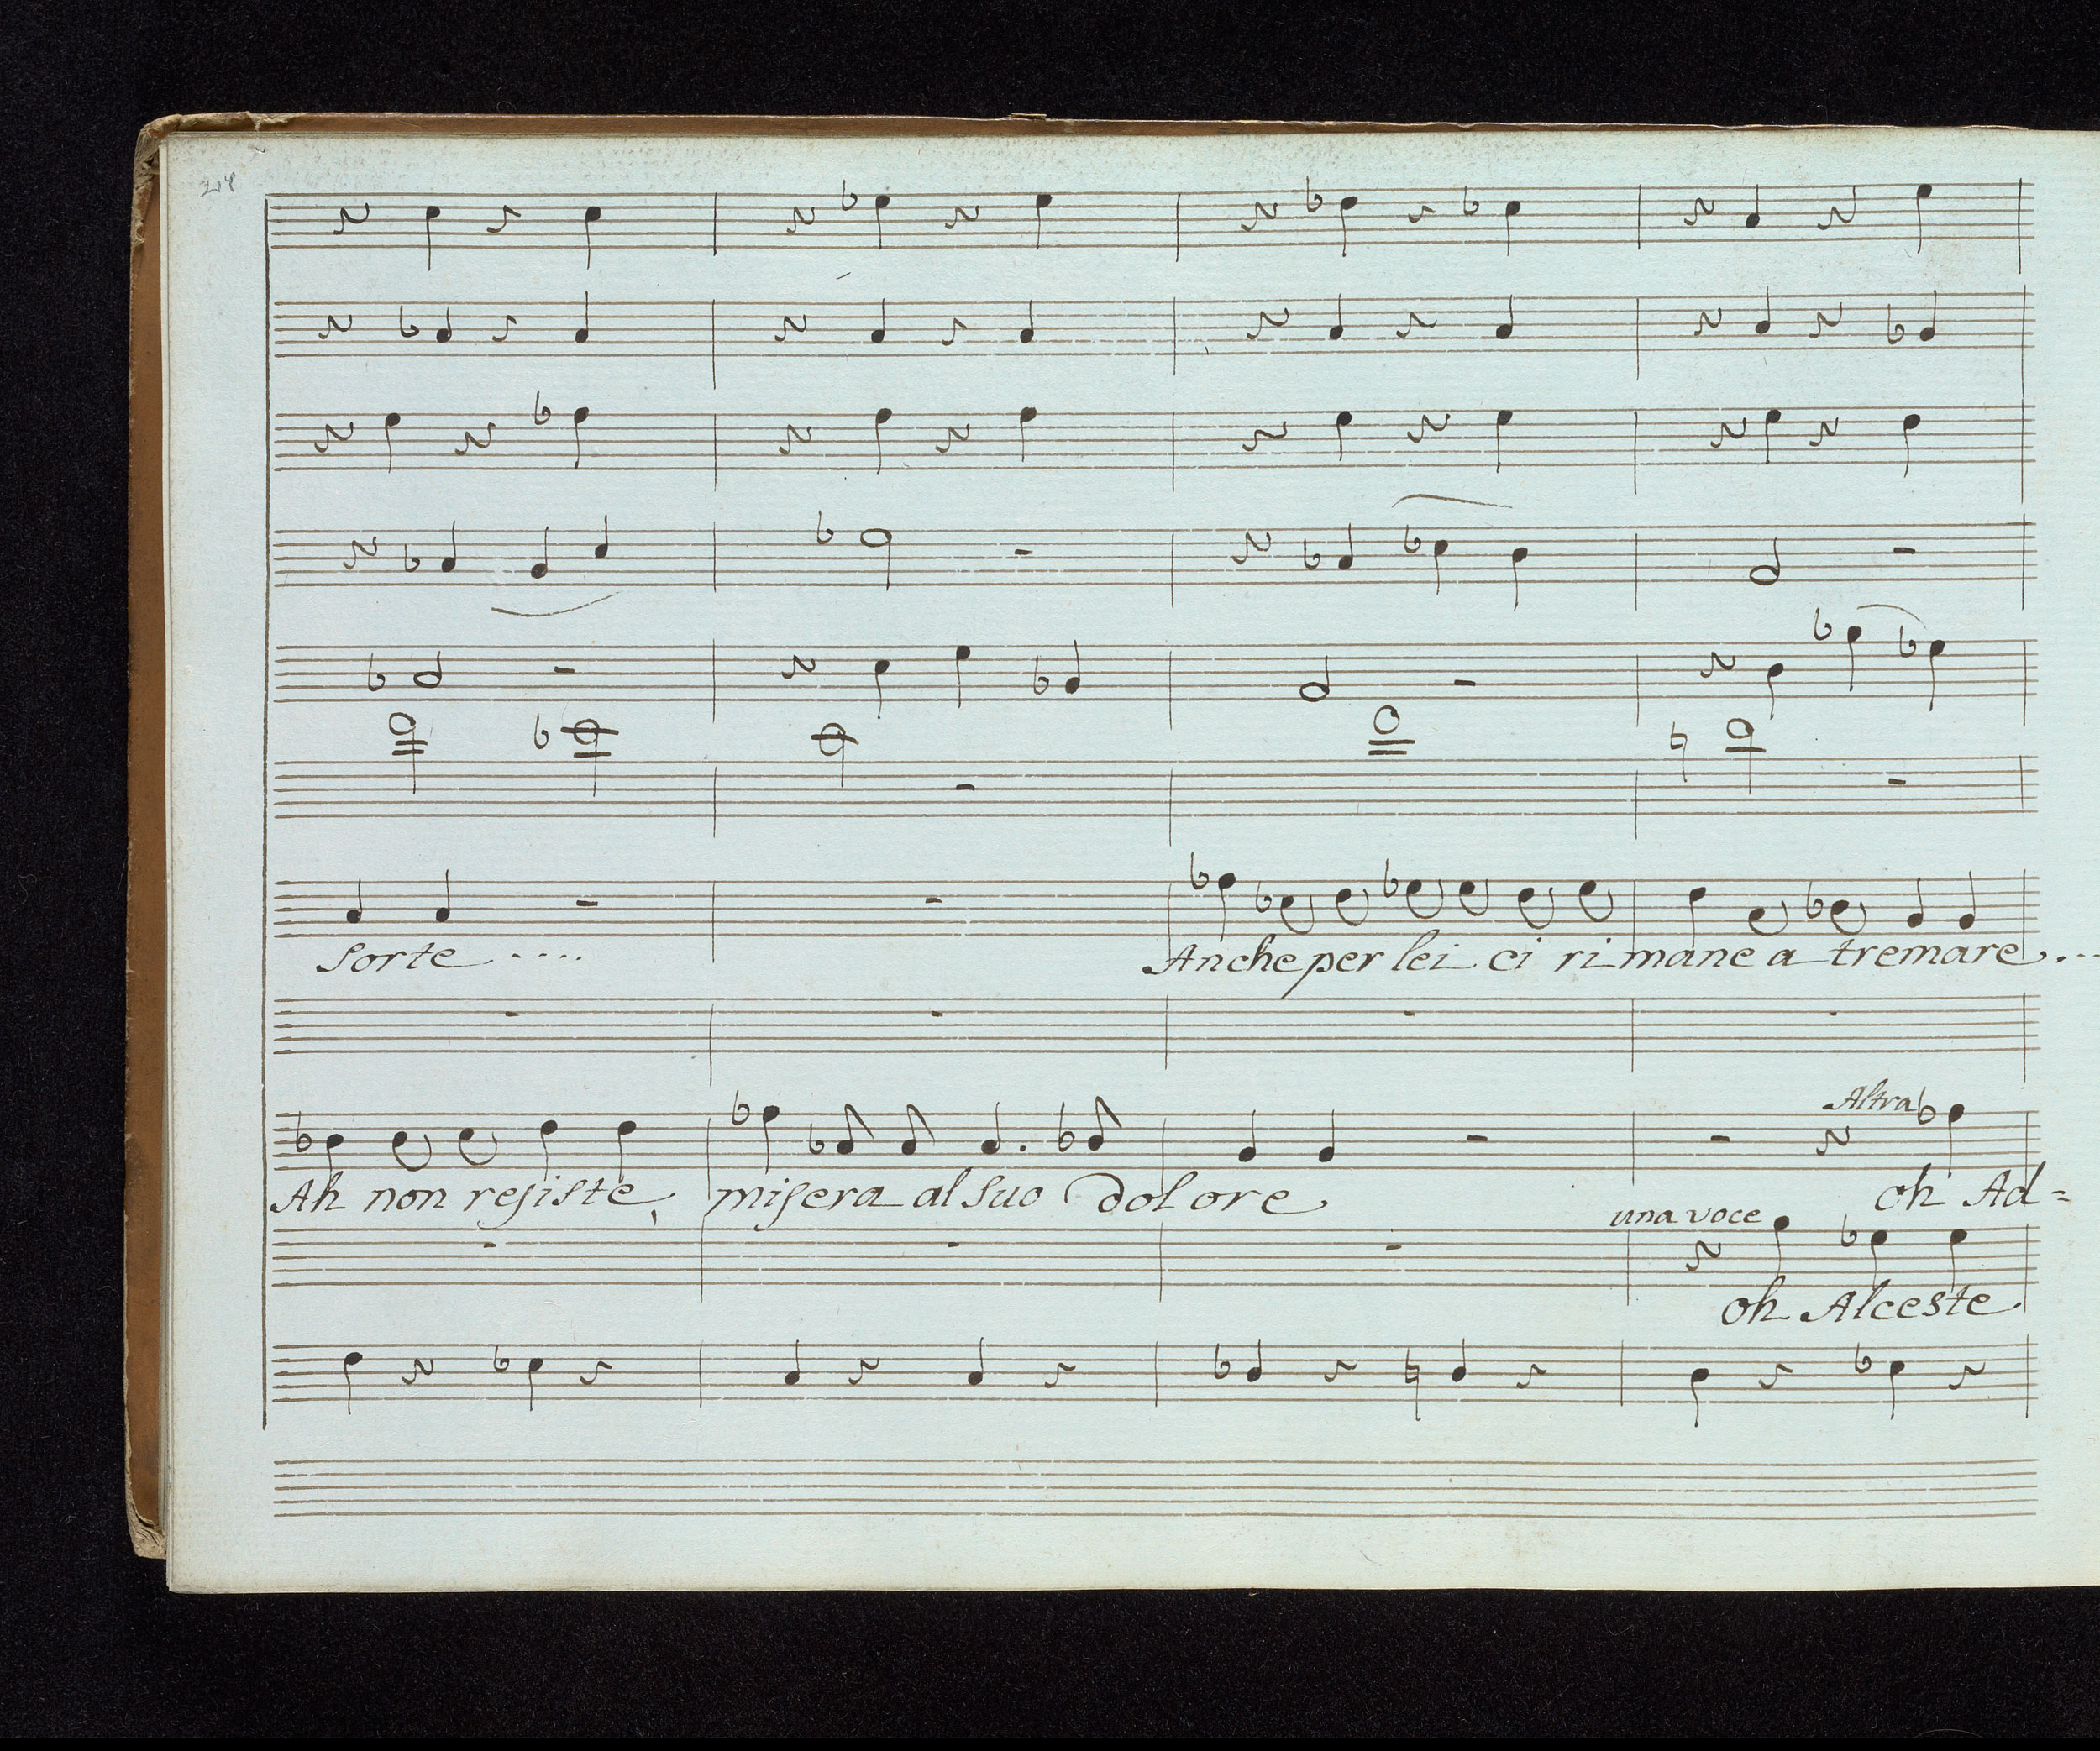 214
Sorte .... Anche per lei ci rimane a tremare ....
Altra
Ah non resiste, misera al suo dolore oh Ad=
una voce
oh Alceste